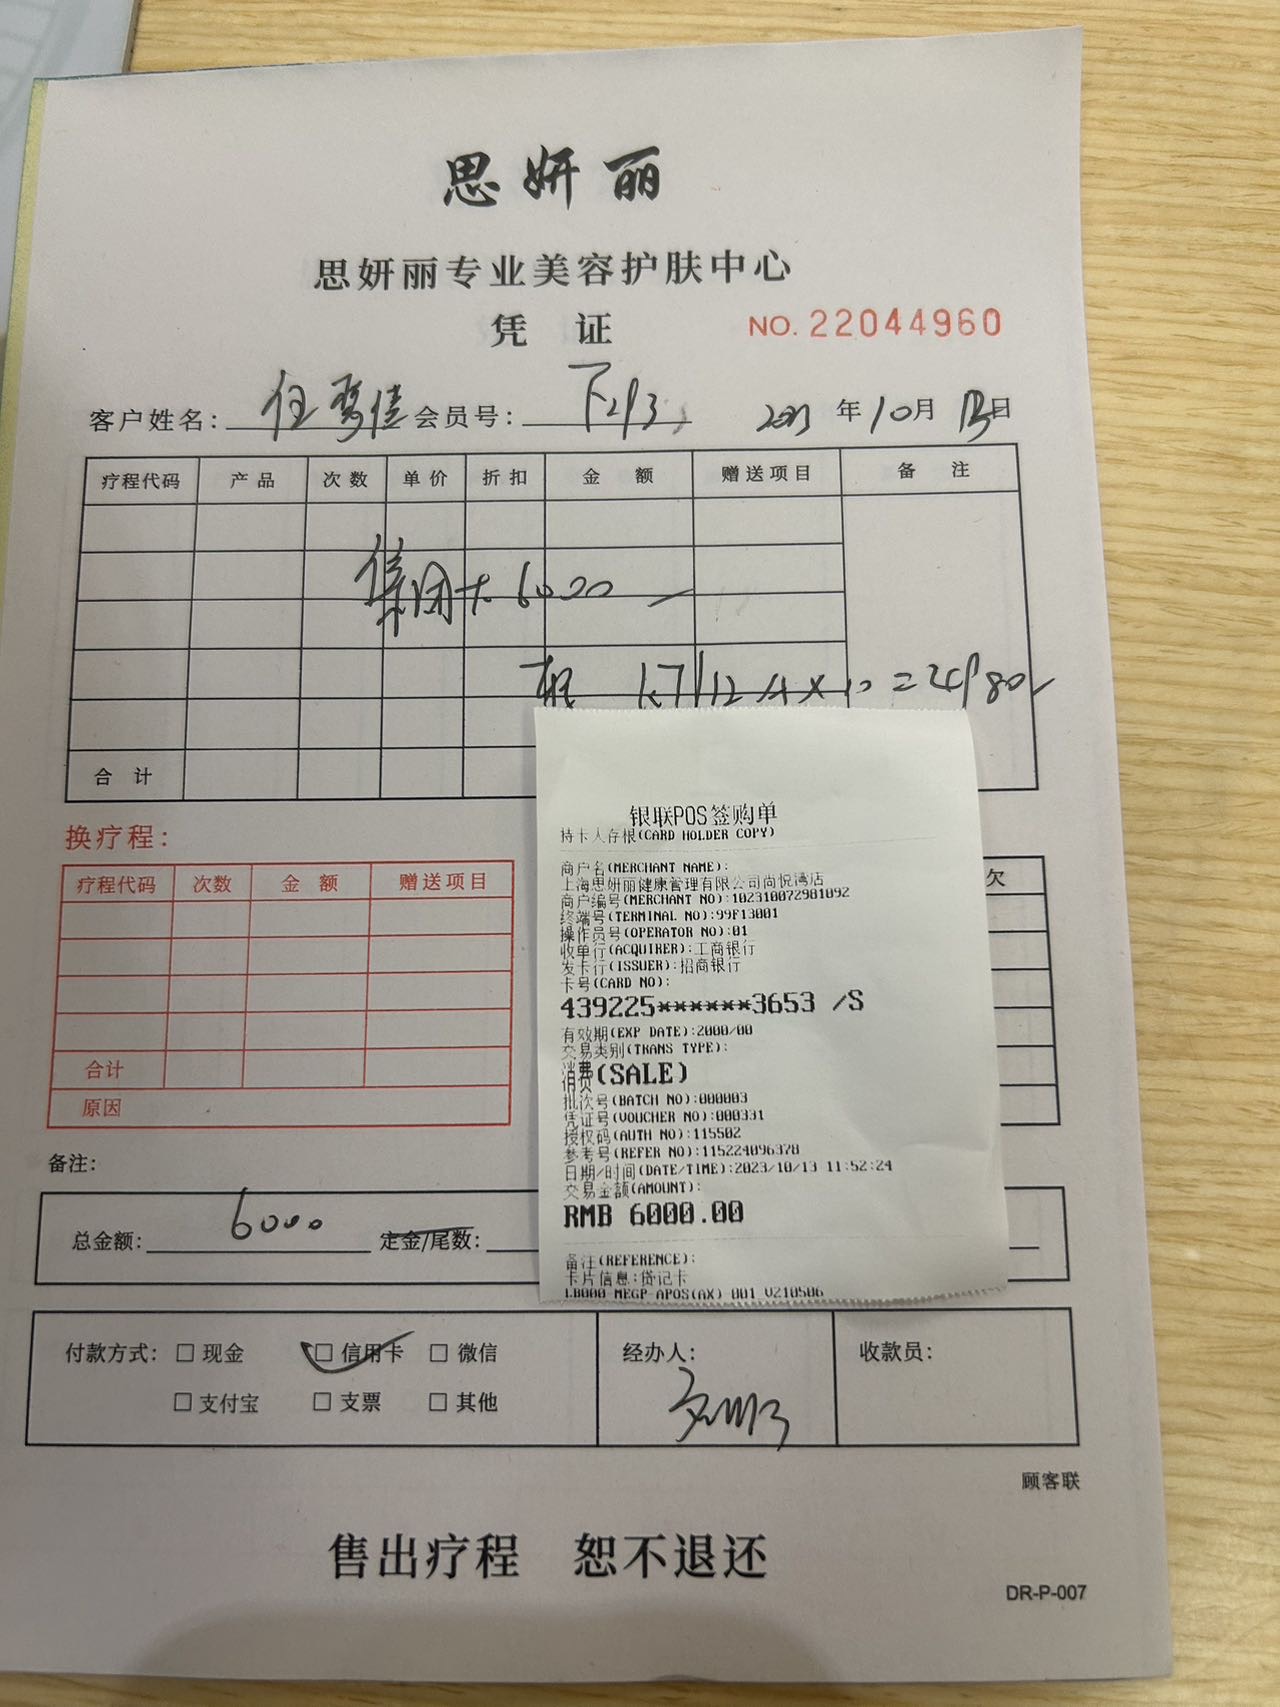 思妍丽
思妍丽专业美容护肤中心
凭 证
NO. 22044960
客户姓名： 会员号： 2023 年 10 月 13 日
疗程代码 产品 次数 单价 折扣 金 额 赠送项目 备 注
集团卡 6000
= 24980
合 计
换疗程：
疗程代码 次数 金 额 赠送项目
欠
合计
原因
备注：
总金额： 6000 定金/尾数：
付款方式： □ 现金 □ 信用卡 □ 微信
□ 支付宝 □ 支票 □ 其他
经办人：
收款员：
顾客联
售出疗程 恕不退还
DR-P-007
银联POS签购单
持卡人存根(CARD HOLDER COPY)
商户名(MERCHANT NAME):
上海思妍丽健康管理有限公司尚悦湾店
商户编号(MERCHANT NO):102310072981092
终端号(TERMINAL NO):99F13001
操作员号(OPERATOR NO):01
收单行(ACQUIRER):工商银行
发卡行(ISSUER):招商银行
卡号(CARD NO):
439225******3653 /S
有效期(EXP DATE):2000/00
交易类别(TRANS TYPE):
消费(SALE)
批次号(BATCH NO):000003
凭证号(VOUCHER NO):000331
授权码(AUTH NO):115502
参考号(REFER NO):115224096378
日期/时间(DATE/TIME):2023/10/13 11:52:24
交易金额(AMOUNT):
RMB 6000.00
备注(REFERENCE):
卡片信息:贷记卡
LB000-MEGP-APOS(AX) 001 V210506